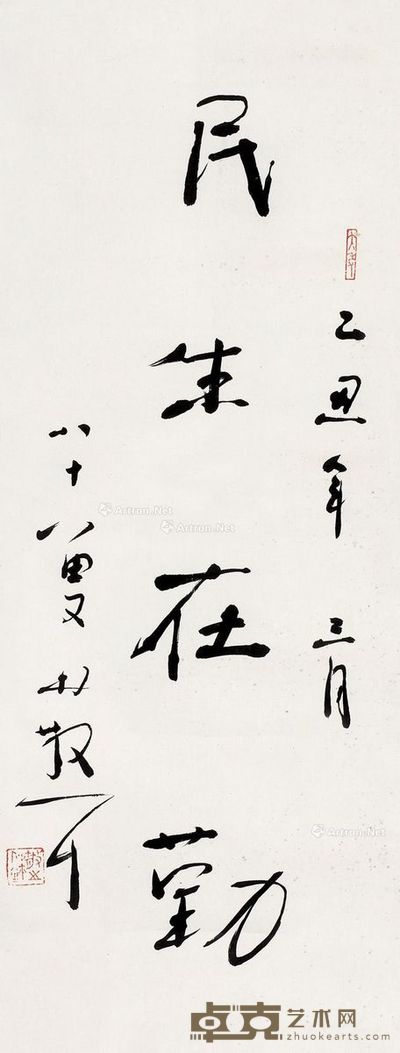 乙丑年三月
民生在勤
八十八叟林散耳
Artron.Net
Artron.Net
Artron.Net
卓克艺术网
zhuokearts.com